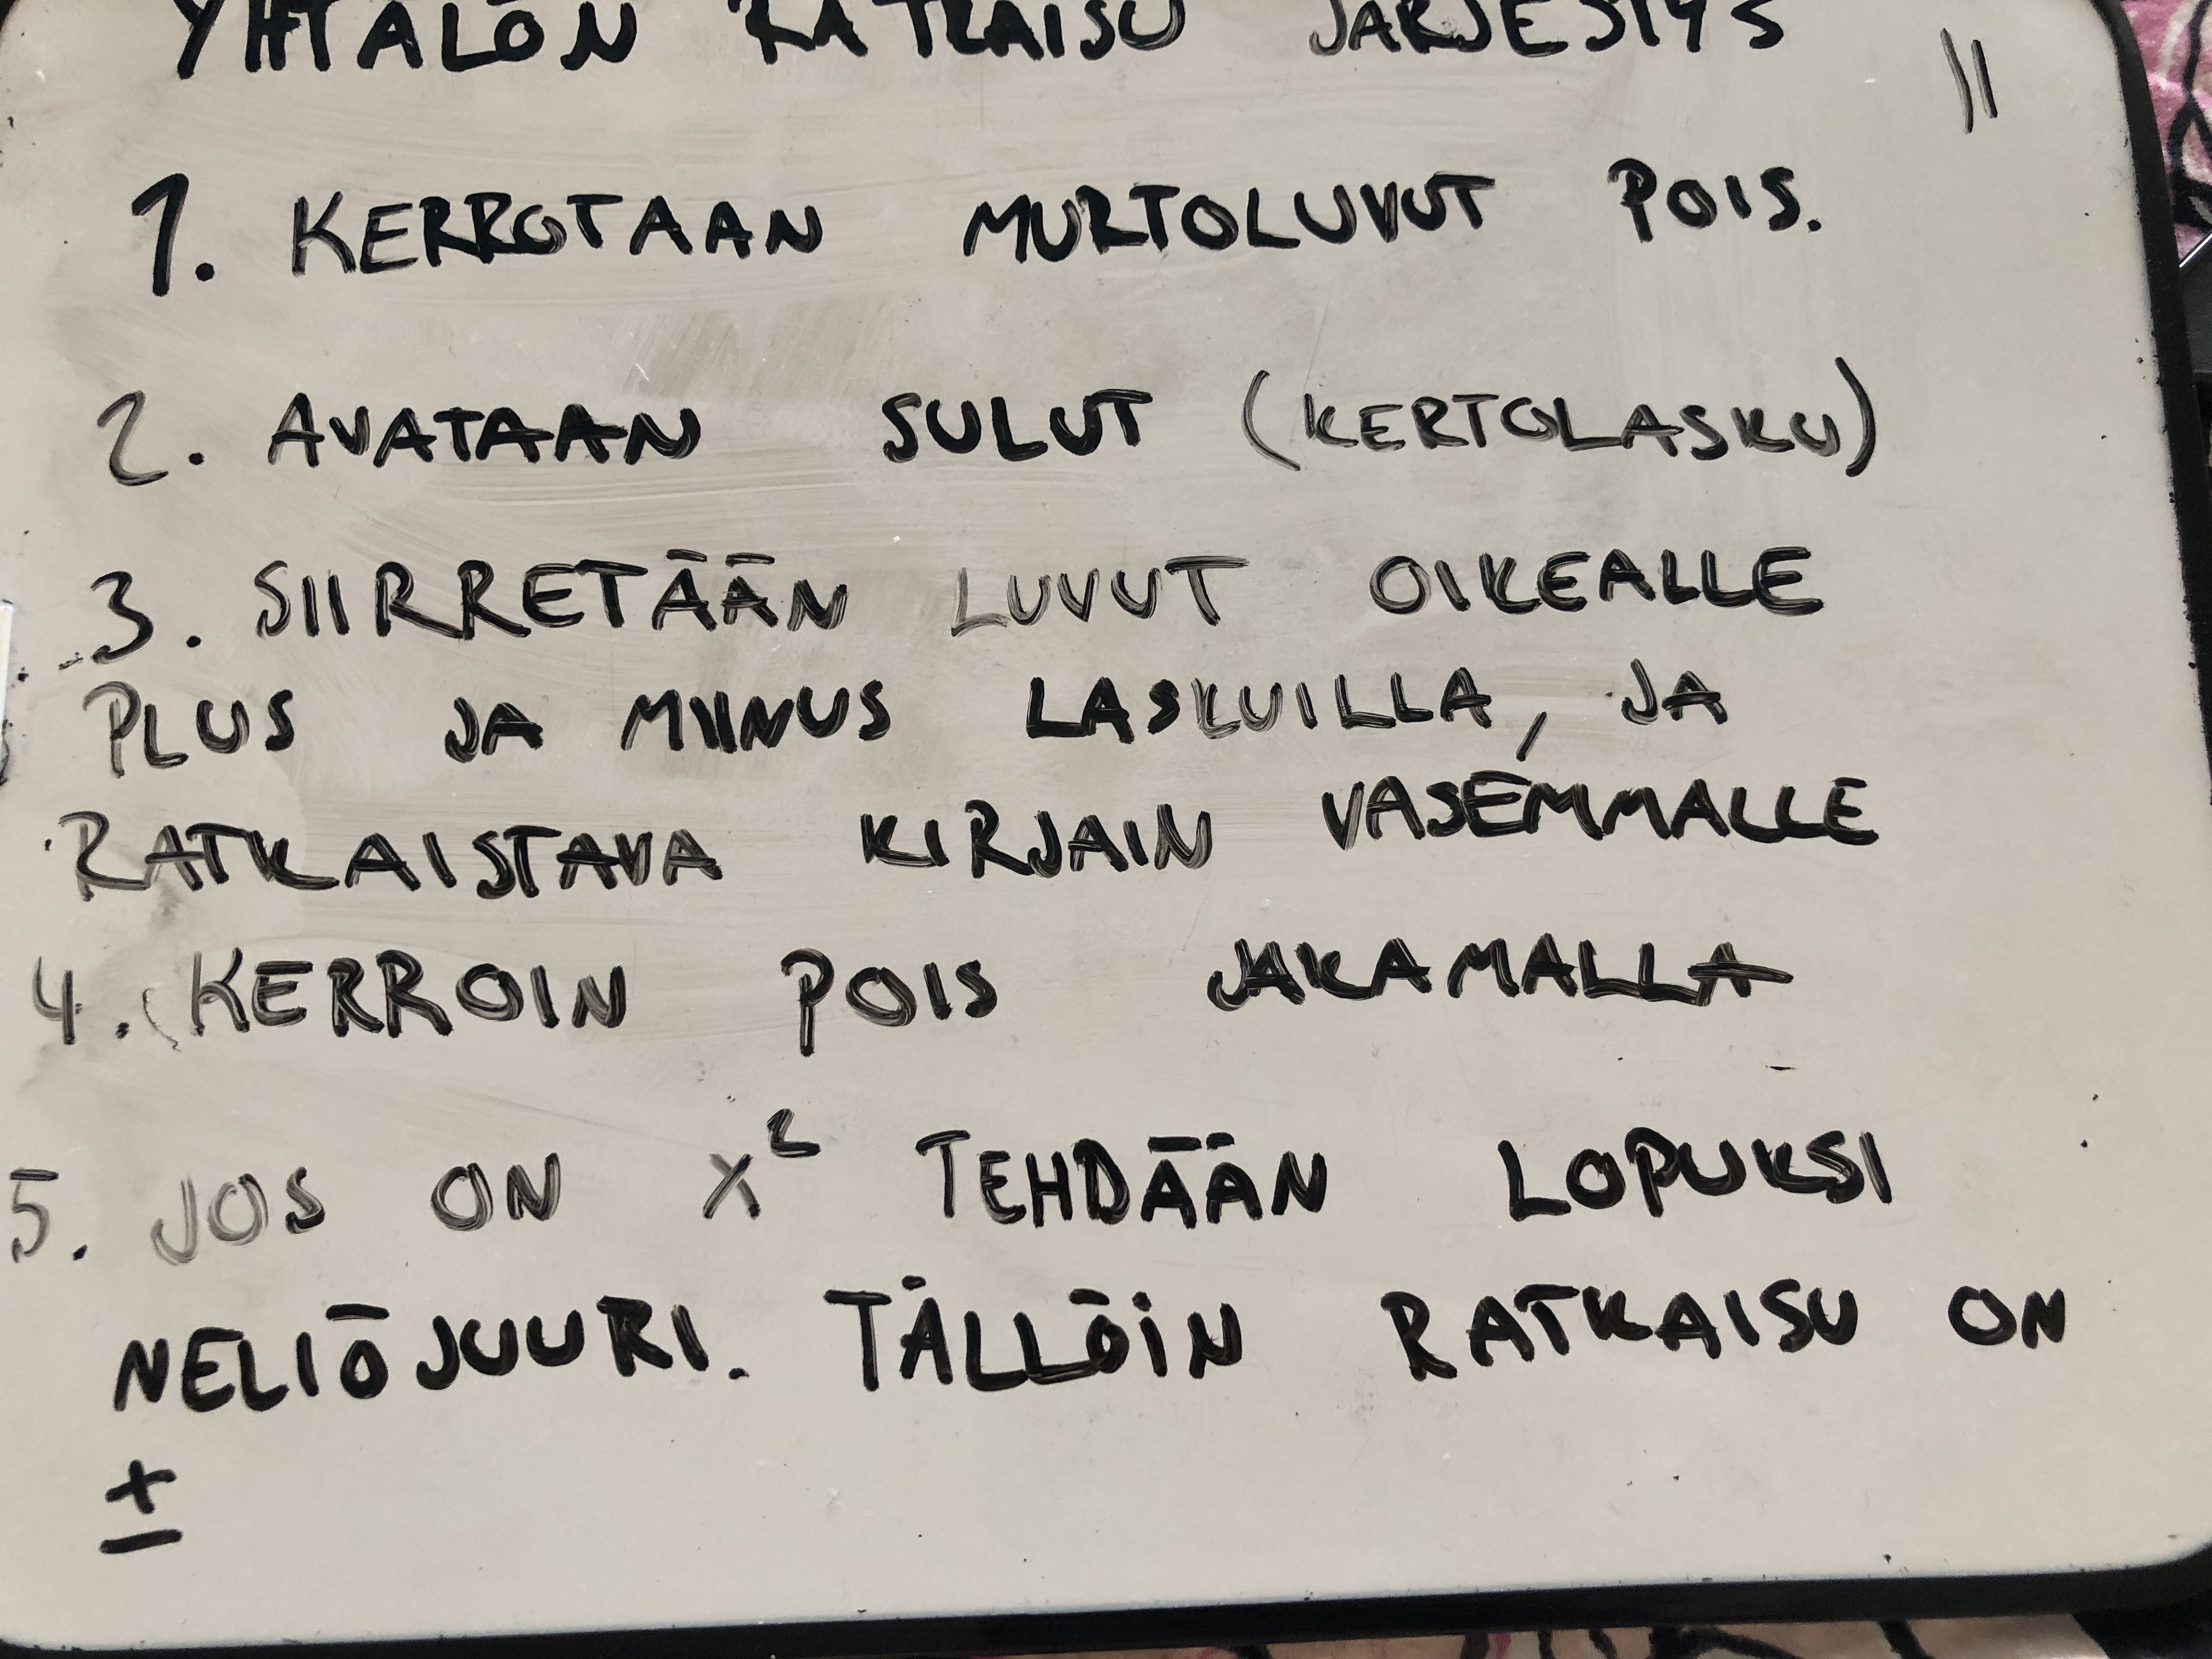 YHTÄLÖN RATKAISU JÄRJESTYS
||
1. KERROTAAN MURTOLUVUT POIS.
2. AVATAAN SULUT (KERTOLASKU)
3. SIIRRETÄÄN LUVUT OIKEALLE
PLUS JA MIINUS LASKUILLA, JA
RATKAISTAVA KIRJAIN VASEMMALLE
4. KERROIN POIS JAKAMALLA
5. JOS ON x² TEHDÄÄN LOPUKSI
NELIÖJUURI. TÄLLÖIN RATKAISU ON
±